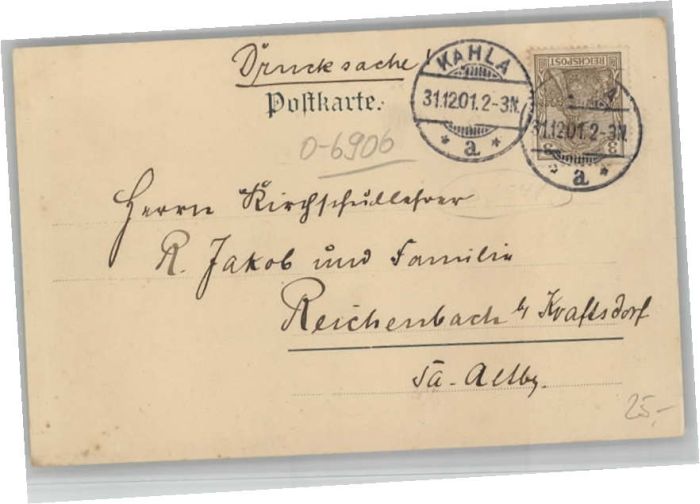 Drucksache!
Postkarte.
KAHLA
31.12.01.2-3N.
* a *
REICHSPOST
3 3
31.12.01.2-3N.
* a *
O-6906
Herrn Kirchschullehrer
R. Jakob und Familie
Reichenbach b/ Kraftsdorf
Sa-Altbg.
25,-